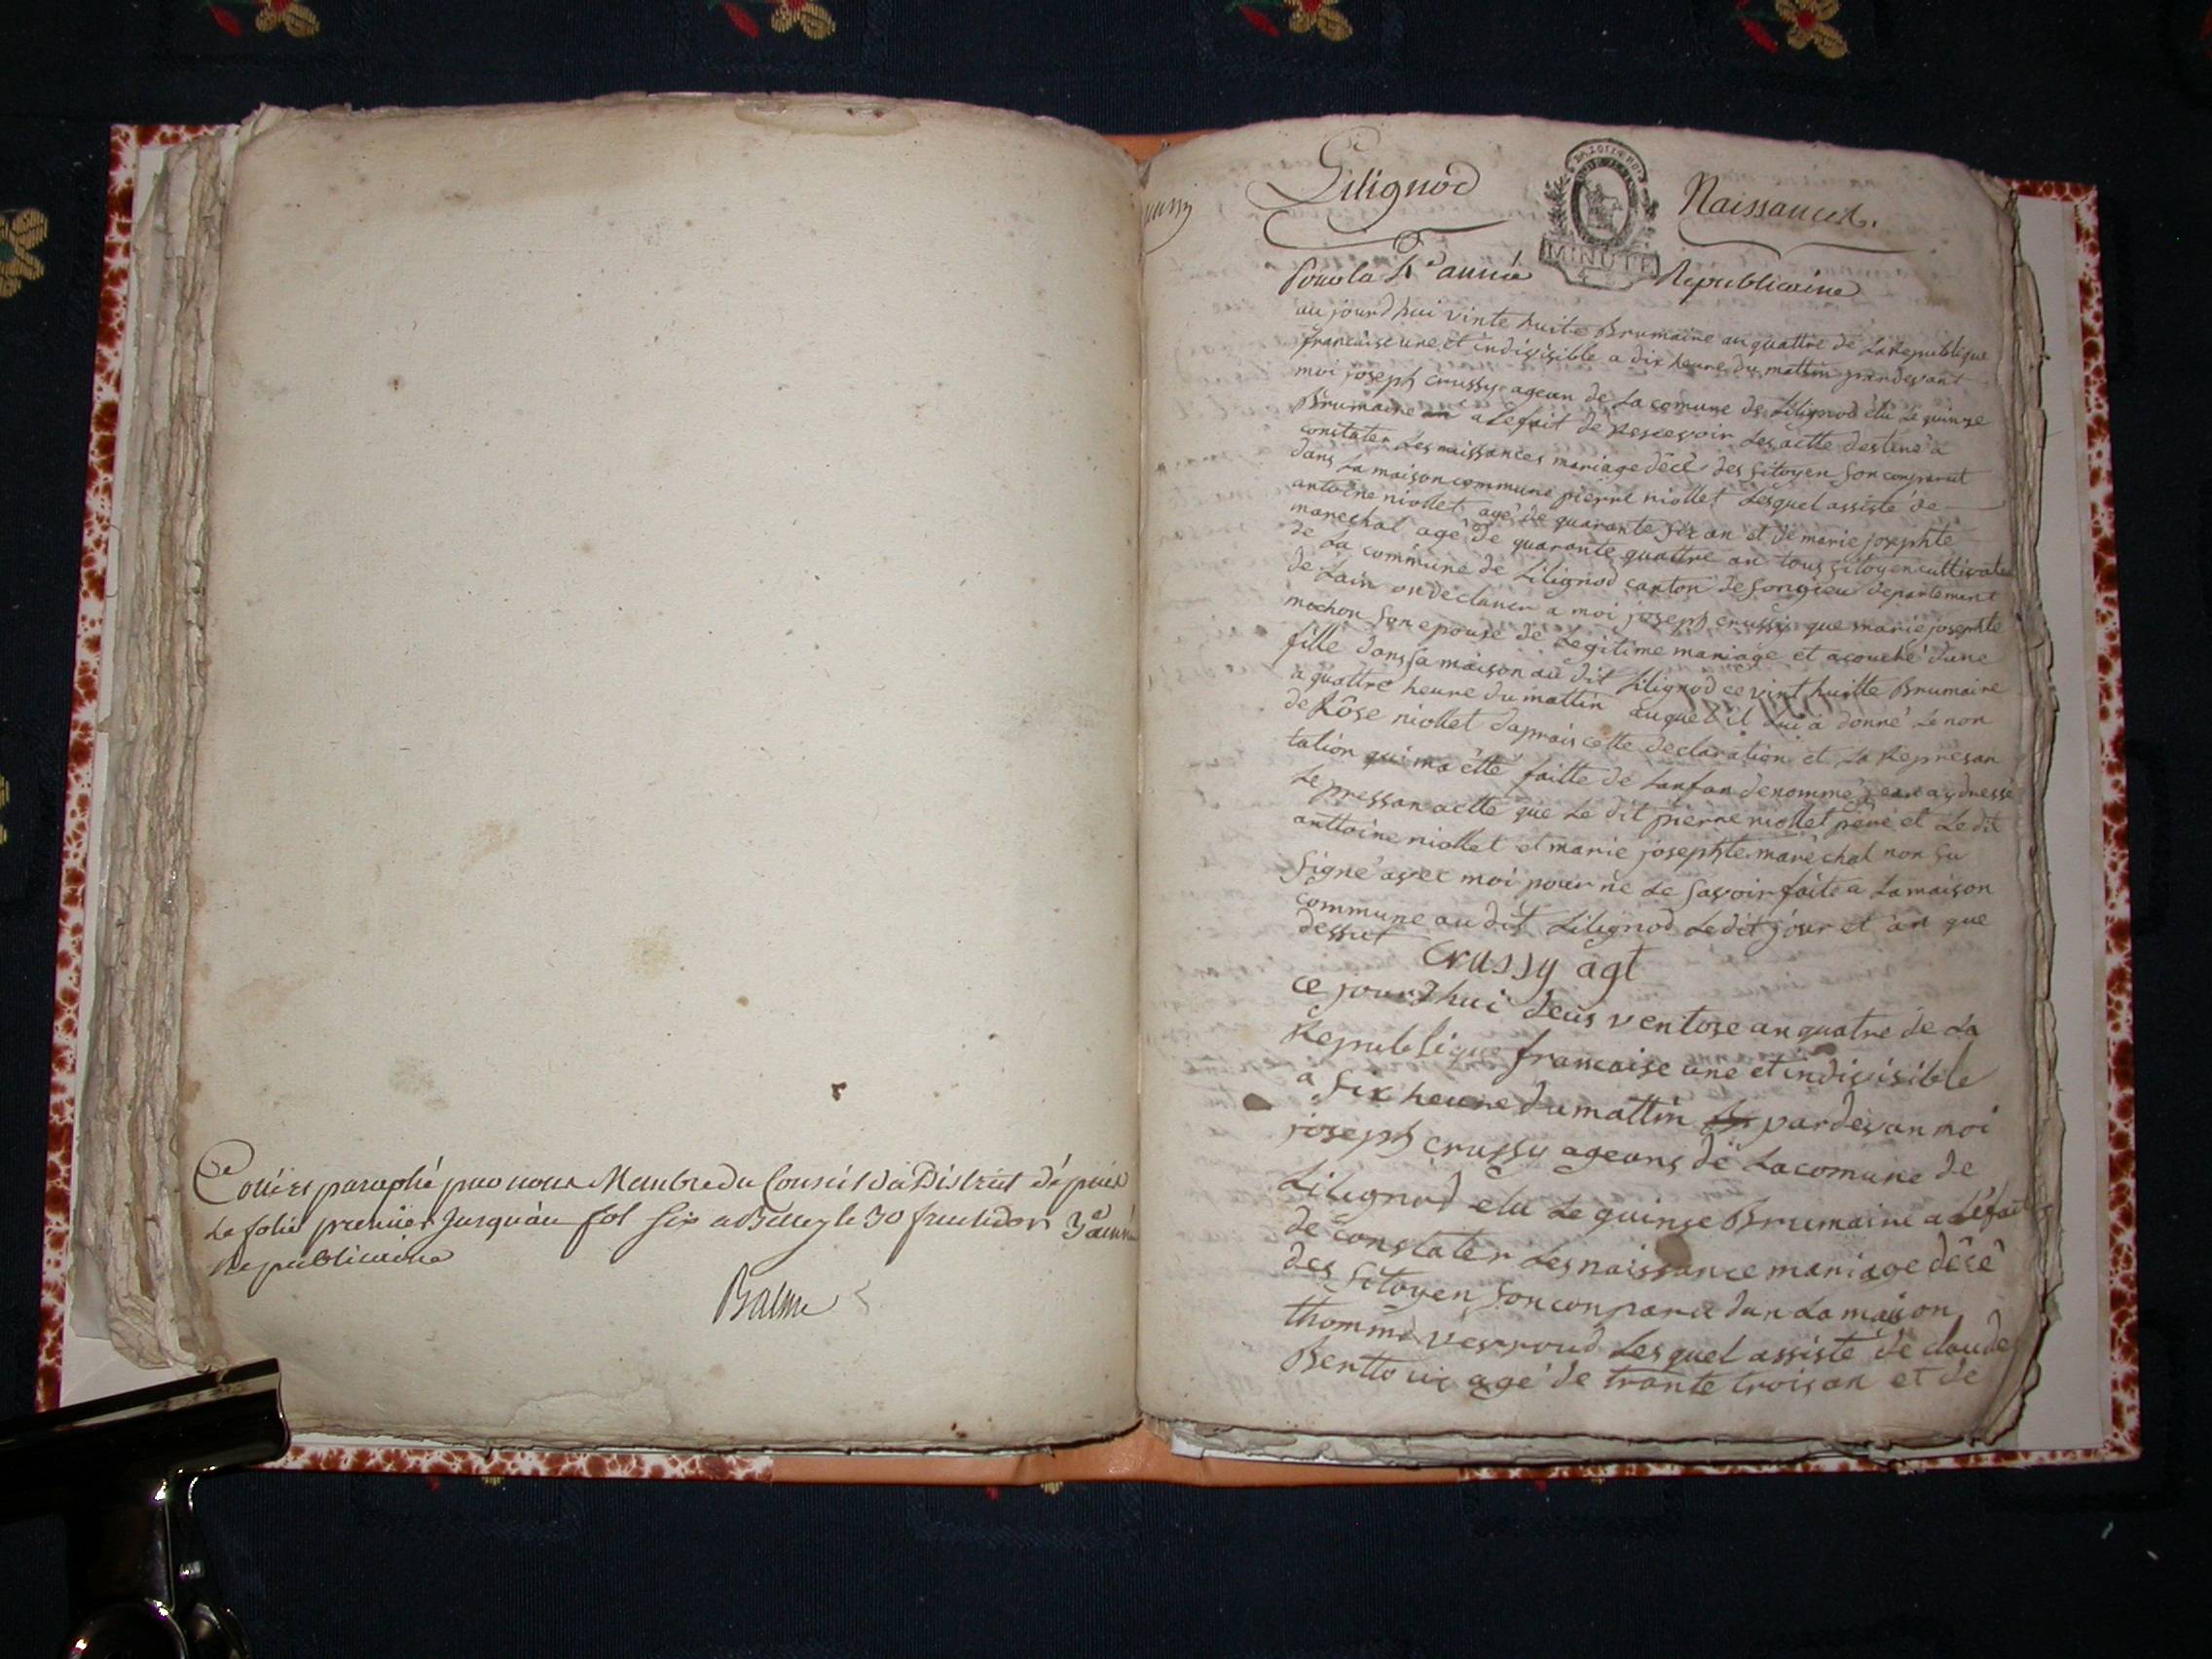 Ce Cayier paraphé par nous Membre du Conseil du District dépuis
le folio premier jusquau fol six a Belley le 30 fructidor 3e année
republicaine
Balme
Lilignod
Naissances.
MINUTE
4
Pour la 4e année Republicaine
aujourdhui vinte huite Brumaire an quattre de La Republique
francaise une et indivisible a dix heure du mattin pardevant
moi joseph crussy agean de La comune de Lilignod élu Le quinze
Brumaire a Lefait de Resçevoir Les actte destiné a
constater Les naissances mariage décé des sitoyen son conparut
dans La maison commune pierre niollet Lesquel assisté de
antoine niollet agé de quarante six an et de marie josephte
marechal agé de quarante quattre an tous sitoyen culttivate
de La commune de Lilignod canton de songieu departement
de Lain on declarer a moi joseph crussy que marie josephte
mochon son epouse de Legitime mariage et acouché dune
fille dans sa maison au dit Lilignod ce vint huitte Brumaire
a quattre heure du mattin auquel il Lui a donné Le non
de Rôse niollet daprais cette declaration et La Represan
tation qui ma étté faitte de Lanfan denommé jean aydressé
Le pressan actte que Le dit pierre niollet pére et Le dit
anttoine niollet et marie josephte maréchal non su
signé avec moi pour ne Le savoir faite a La maison
commune au dit Lilignod Ledit jour et an que
dessut
crussy agt
ce jourdhui deus ventose an quatre de La
Republique francaise une et indivisible
a six heure du mattin pardevan moi
joseph crussy ageans de La comune de
Lilignod elu Le quinze Brumaire a Lefait
de constater Les naissance mariage désé
des sitoyen son conparu dan La maison
thomme verroud Lesquel assisté de claude
Bertto agé de trante trois an et de